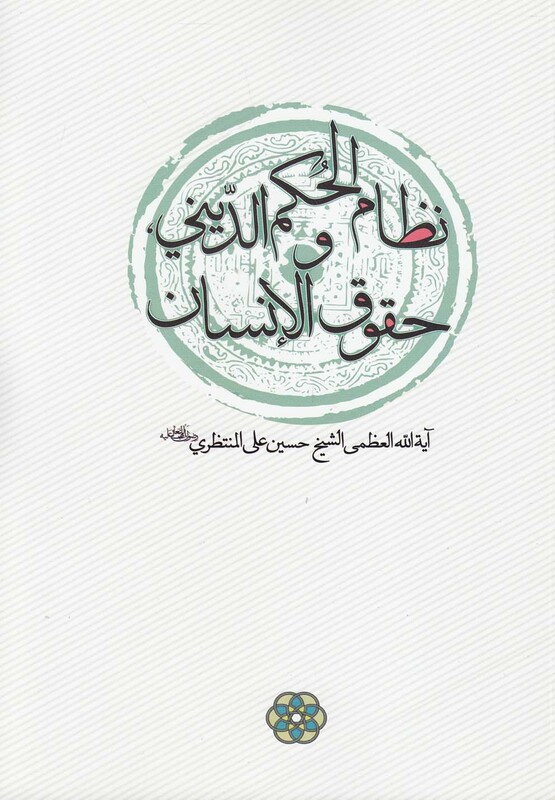 نظام الحُكم الدّيني،
و
حقوق الإنسان
آية الله العظمى الشيخ حسين على المنتظري